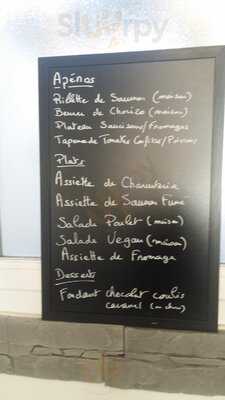 Sluurpy
Apéros
Rillette de Saumon (maison)
Beurre de Chorizo (maison)
Plateau Saucisson/Fromages
Tapenade Tomates Confites/Poivrons
Plats
Assiette de Charcuterie
Assiette de Saumon Fumé
Salade Poulet (maison)
Salade Vegan (maison)
Assiette de Fromage
Desserts
Fondant chocolat coulis
caramel